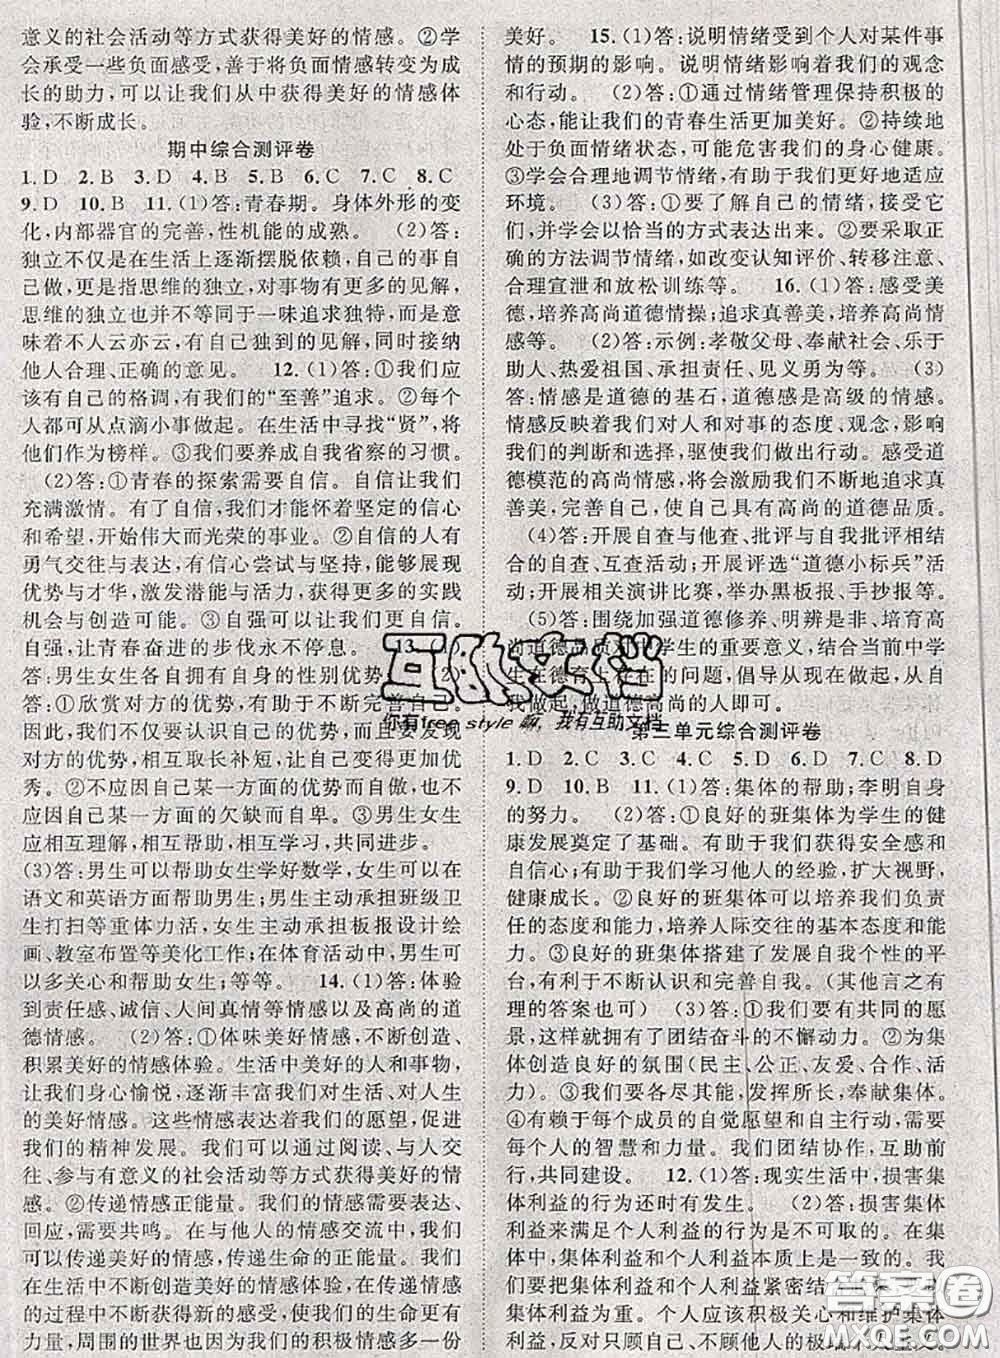 意义的社会活动等方式获得美好的情感。②学
会承受一些负面感受,善于将负面情感转变为成
长的助力,可以让我们从中获得美好的情感体
验,不断成长。
期中综合测评卷
1. D 2. B 3. D 4. B 5. B 6. C 7. C 8. C
9. D 10. B 11. (1)答:青春期。身体外形的变
化,内部器官的完善,性机能的成熟。 (2)答:
独立不仅是在生活上逐渐摆脱依赖,自己的事自
己做,更是指思维的独立,对事物有更多的见解,
思维的独立并不等同于一味追求独特,而是意
味着不人云亦云,有自己独到的见解,同时接纳
他人合理、正确的意见。 12. (1)答:①我们应
该有自己的格调,有我们的“至善”追求。②每个
人都可从点滴小事做起。在生活中寻找“贤”,将
他们作为榜样。③我们要养成自我省察的习惯。
(2)答:①青春的探索需要自信。自信让我们
充满激情。有了自信,我们才能怀着坚定的信心
和希望,开始伟大而光荣的事业。②自信的人有
勇气交往与表达,有信心尝试与坚持,能够展现
优势与才华,激发潜能与活力,获得更多的实践
机会与创造可能。③自强可以让我们更加自信。
自强,让青春奋进的步伐永不停息。
答:男生女生各自拥有自身的性别优势。
①欣赏对方的优势,有助于不断完善自己。
因此,我们不仅要认识自己的优势,而且要发现
对方的优势,相互取长补短,让自己变得更加优
秀。②不应因自己某一方面的优势而自傲,也不
应因自己某一方面的欠缺而自卑。③男生女生
应相互理解,相互帮助,相互学习,共同进步。
(3)答:男生可以帮助女生学好数学,女生可以在
语文和英语方面帮助男生;男生主动承担班级卫
生打扫等重体力活,女生主动承担板报设计绘
画、教室布置等美化工作;在体育活动中,男生可
以多关心和帮助女生;等等。 14. (1)答:体验
到责任感、诚信、人间真情等情感以及高尚的道
德情感。 (2)答:①体味美好情感,不断创造、
积累美好的情感体验。生活中美好的人和事物,
让我们身心愉悦,逐渐丰富我们对生活、对人生
的美好情感。这些情感表达着我们的愿望,促进
我们的精神发展。我们可以通过阅读、与人交
往、参与有意义的社会活动等方式获得美好的情
感。②传递情感正能量。我们的情感需要表达、
回应,需要共鸣。在与他人的情感交流中,我们
可以传递美好的情感,传递生命的正能量。我们
在生活中不断创造美好的情感体验,在传递情感
中不断获得新的感受,使我们的生命更有
力量,周围的世界也因为我们的积极情感多一份
美好。 15. (1)答:说明情绪受到个人对某件事
情的预期的影响。说明情绪影响着我们的观念
和行动。 (2)答:①通过情绪管理保持积极的
心态,能让我们的青春生活更加美好。②持续地
处于负面情绪中,可能危害我们的身心健康。
③学会合理地调节情绪,有助于我们更好地适应
环境。 (3)答:①要了解自己的情绪,接受它
们,并学会以恰当的方式表达出来。②要采取正
确的方法调节情绪,如改变认知评价、转移注意、
合理宣泄和放松训练等。 16. (1)答:感受美
德,培养高尚道德情操;追求真善美,培养高尚情
感等。 (2)答:示例:孝敬父母、奉献社会、乐于
助人、热爱祖国、承担责任、见义勇为等。 (3)
答:情感是道德的基石,道德感是高级的情感。
情感反映着我们对人和对事的态度、观念,影响
我们的判断和选择,驱使我们做出行动。感受道
德模范的高尚情感,将会激励我们不断追求真善
美,完善自己,使自己具有高尚的道德品质。
(4)答:开展自查与他查、批评与自我批评相结合
的自查、互查活动;开展评选“道德小标兵”活动;
开展相关演讲比赛,举办黑板报、手抄报等。
(5)答:围绕加强道德修养、明辨是非、培育高
尚道德品质对中学生的重要意义,结合当前中学
生在德育中存在的问题,倡导从现在做起,从自
我做起,做道德高尚的人即可。
第三单元综合测评卷
1. D 2. C 3. C 4. C 5. D 6. D 7. C 8. D
9. D 10. B 11. (1)答:集体的帮助;李明自身
的努力。 (2)答:①良好的班集体为学生的健
康发展奠定了基础。有助于我们获得安全感和
自信心;有助于我们学习他人的经验,扩大视野,
健康成长。②良好的班集体可以培养我们负责
任的态度和能力,培养人际交往的基本态度和能
力。③良好的班集体搭建了发展自我个性的平
台,有利于不断认识和完善自我。(其他言之有
理的答案也可) (3)答:①我们要有共同的愿
景,这样就拥有了团结奋斗的不懈动力。②为集
体创造良好的氛围(民主、公正、友爱、合作、活
力)。③我们要各尽其能,发挥所长,奉献集体。
④有赖于每个成员的自觉愿望和自主行动,需要
每个人的智慧和力量。我们团结协作,互助前
行,共同建设。 12. (1)答:现实生活中,损害集
体利益的行为还时有发生。 (2)答:损害集体
利益来满足个人利益的行为是不可取的。在集
体中,集体利益和个人利益本质上是一致的。我
们要把集体利益和个人利益紧密结
体利益为重。个人应该积极关心和维护集体
利益,反对只顾自己、不顾他人的
互助文档
你有free style嘛,我有互助文档
答案卷
MXQE.COM